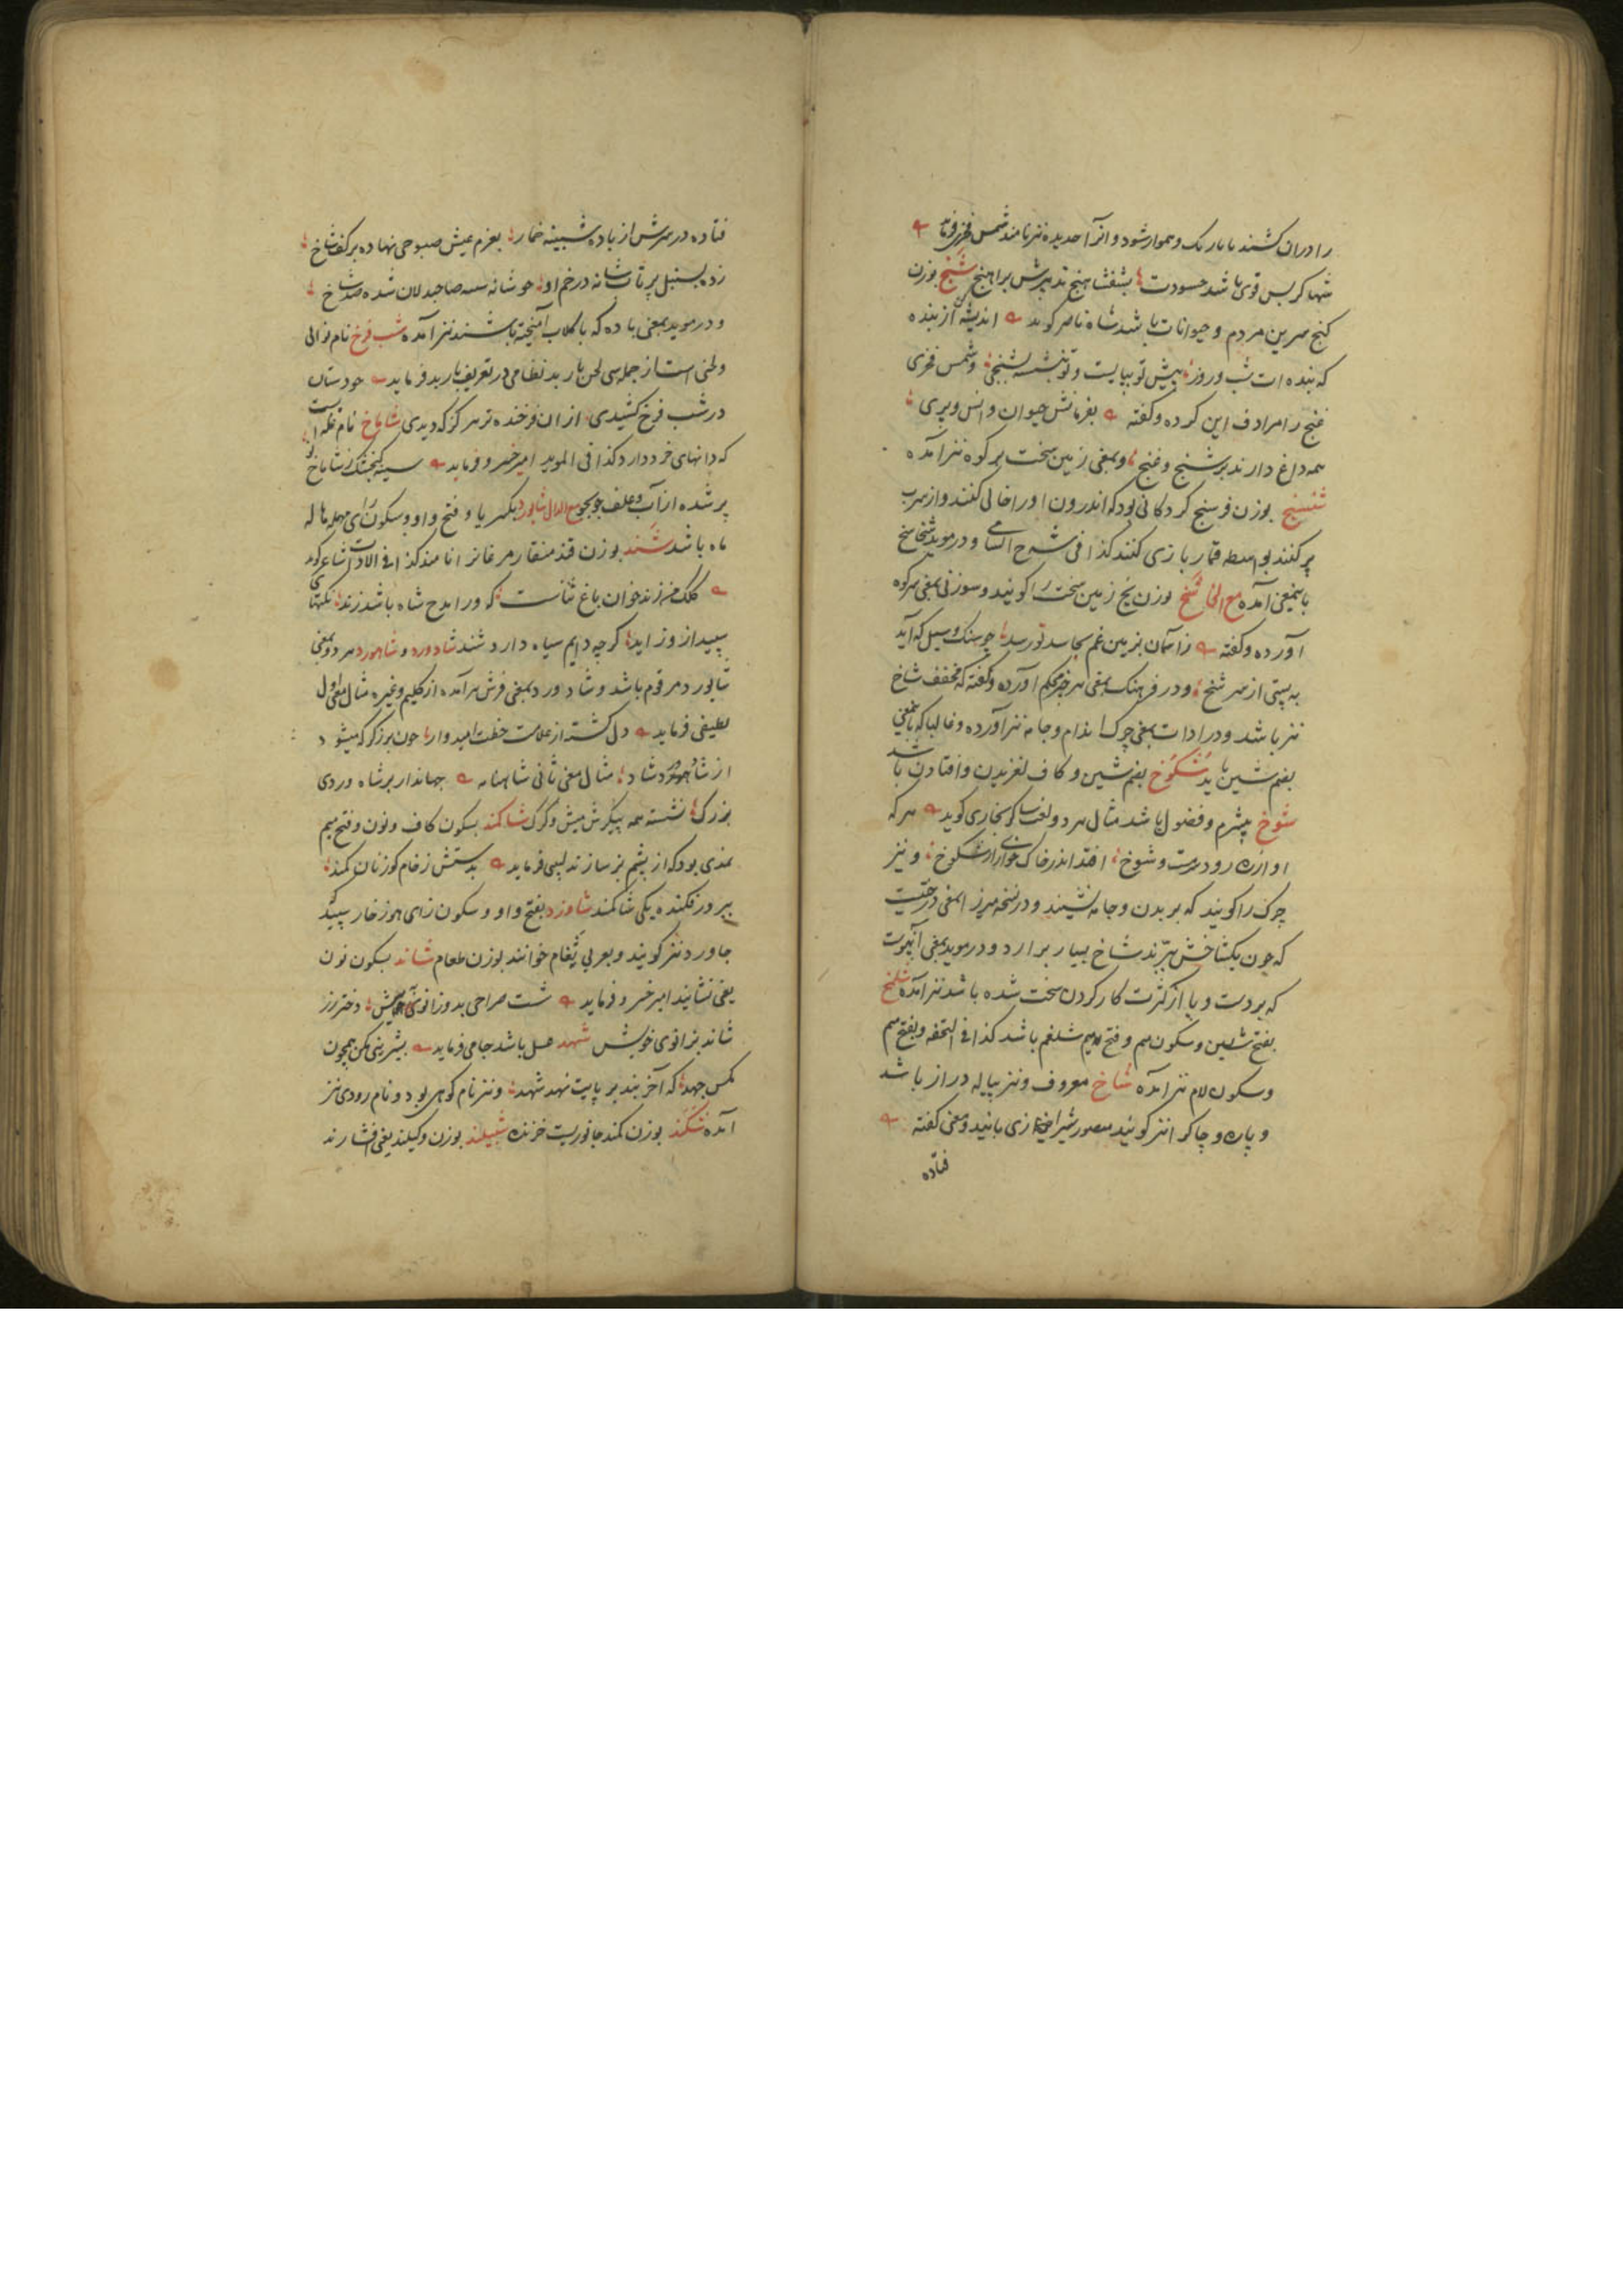 را دران کشند تا باریک و هموار شود و انرا حدیده نیز نامند شمس فخری فرماید
شها کر بس قوی باشد حسودت بشفشاهنج تدبیرش براهنج شنج بوزن
کنج سرین مردم و حیوانات باشد شاه ناصر کوید اندیشه کن از بنده
که بنده ات شب و روز پیش تو بپایست و تو بنشسته بشنجی و شمس فخری
غنج را مرادف این کرده و گفته بفرمانش حیوان و انس و پری
همه داغ دارند بر شنج و غنج و بمعنی زمین سخت بر کوه نیز آمده
بوزن فرسنج کردکانی بود که اندرون او را خالی کنند و از سرب
پر کنند بواسطه قمار بازی کنند کذا فی شرح السامی و در موید
باینمعنی آمده مع الخا شخ بوزن یخ زمین سخت را کویند و سوزنی بمعنی سر کوه
آورده و گفته ز اسمان بزمین غم بحاسد تو رسد چو سنک و سیل که آید
به پستی از سر شخ و در فرهنک بمعنی هر چیز محکم آورده و گفته که مخفف شاخ
نیز باشد و در ادات بمعنی چرک اندام و جامه نیز آورده و غالبا که باینمعنی
بضم شین باید شکوخ بضم شین و کاف لغزیدن و افتادن باشد
شوخ بیشرم و فضول باشد مثال هر دو لغت عسکر بخاری کوید هر که
او ازره رود مست و شوخ افتد اندر خاک خواری از شکوخ و نیز
چرک را کویند که بر بدن و جامه نشیند و در نسخه میرزا بمعنی درختیست
که چون یکشاخش ببرند شاخ بسیار برارد و در موید بمعنی
که بر دست و پا از کثرت کار کردن سخت شده باشد نیز آمده شلمخ
بفتح شین و سکون میم و فتح لام شلغم باشد کذا فی التحفه و بفتح میم
و سکون لام نیز آمده شاخ معروف و نیز پیاله دراز باشد
و پاره و چاک را نیز کویند منصور شیرازی بانید و معنی گفته
فتاده
فتاده در سرش از باده شبینه خمار بعزم عیش صبوحی نهاده بر کف شاخ
زده بسنبل پر تاب شانه در خم او چو شانه سینه صاحبدلان شده صد شاخ
و در موید بمعنی باده که با کلاب آمیخته باشند نیز آمده شب فرخ نام نوائی
و لحنی است از جمله سی لحن باربد نظامی در تعریف باربد فرماید چو دستان
در شب فرخ کشیدی ازان فرخنده تر هرکز که دیدی شاماخ نام غله ایست
که دانهای خرد دارد کذا فی الموید امیر خسرو فرماید سینه کنجشک ز شاماخ نو
پر شده از آب و علف جو بجو مع الدال شایورد بکسر یا و فتح واو و سکون رای مهمله هاله
ماه باشد شند بوزن قند منقار مرغانرا نامند کذا فی الادات شاعر کوید
کلک من زند خوان باغ ثناست که ورا مدح شاه باشد زند نکتهای
سپید ازو زاید کر چه دایم سیاه دارد شند شادورد و شاهورد هر دو بمعنی
شایورد مرقوم باشد و شادورد بمعنی فرش نیز آمده از کلیم و غیره مثال معنی اول
لطیفی فرماید دل کشته از علامت خطت امیدوار چون برزکر که میشود
از شاهورد شاد مثال معنی ثانی شاهنامه جهاندار بر شادوردی
بزرک نشسته همه پیکرش میش و کرک شاکمند بسکون کاف و نون و فتح میم
نمدی بود که از پشم بز سازند لبیبی فرماید بدستش ز خام کوزنان کمند
ببر در فکنده یکی شاکمند شاوزد بفتح واو و سکون زای هوز خار سپید
جاورد نیز کویند و بعربی ثغام خوانند بوزن طعام شاند بسکون نون
یعنی نشانید امیر خسرو فرماید شست صراحی بدو زانوی خویش دختر رز
شاند بزانوی خویش شهد عسل باشد جامی فرماید بشیرینی مکن همچون
مکس جهد که آخر بند بر پایت نهد شهد و نیز نام کوهی بود و نام رودی نیز
آمده شکند بوزن کمند جانوریست خزنده شپیلند بوزن و کیلند یعنی افشارند